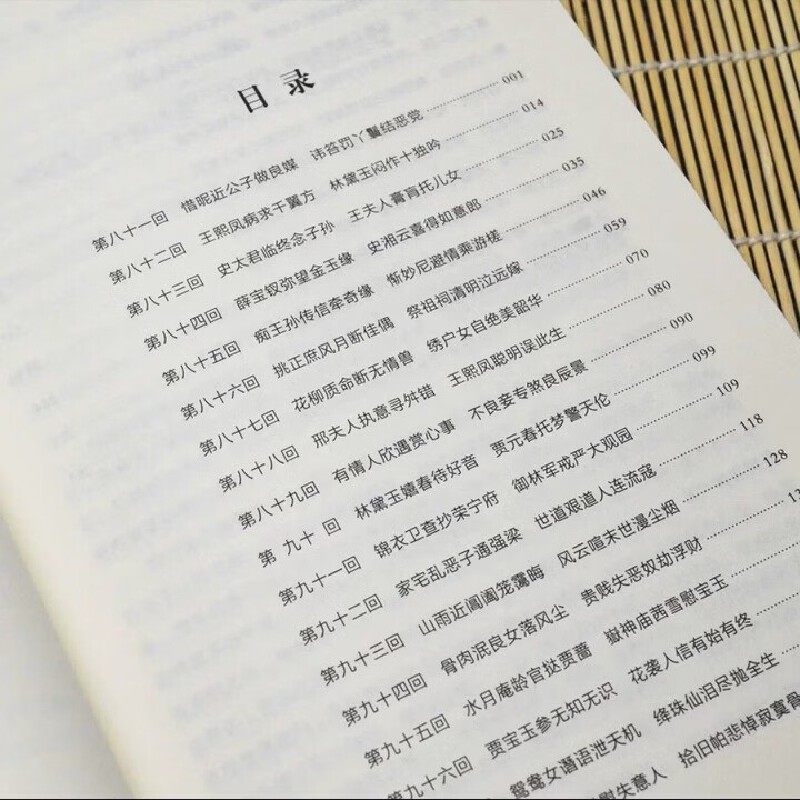 目录
第八十一回 惜昵近公子做良媒 讳笞罚丫鬟结恶党 ········ 001
第八十二回 王熙凤病求千翼方 林黛玉闷作十独吟 ········ 014
第八十三回 史太君临终念子孙 王夫人膏肓托儿女 ········ 025
第八十四回 薛宝钗弥望金玉缘 史湘云喜得如意郎 ········ 035
第八十五回 痴王孙传信牵奇缘 惭妙尼避情乘游槎 ········ 046
第八十六回 挑正庶风月断佳偶 祭祖祠清明泣远嫁 ········ 059
第八十七回 花柳质命断无情兽 绣户女自绝美韶华 ········ 070
第八十八回 邢夫人执意寻舛错 王熙凤聪明误此生 ········ 080
第八十九回 有情人欣遇赏心事 不良妾专煞良辰景 ········ 090
第九十回 林黛玉嬉春待好音 贾元春托梦警天伦 ········ 099
第九十一回 锦衣卫查抄荣宁府 御林军戒严大观园 ········ 109
第九十二回 家宅乱恶子通强梁 世道艰道人连流寇 ········ 118
第九十三回 山雨近阊阖笼霭晦 风云喧末世漫尘烟 ········ 128
第九十四回 骨肉泯良女落风尘 贵贱失恶奴劫浮财 ········
第九十五回 水月庵龄官挞贾蔷 嶽神庙茜雪慰宝玉
第九十六回 贾宝玉参无知无识 花袭人信有始有终
鸳鸯女谶语泄天机 绛珠仙泪尽抛全生
慰失意人 拾旧帕悲悼寂寞骨